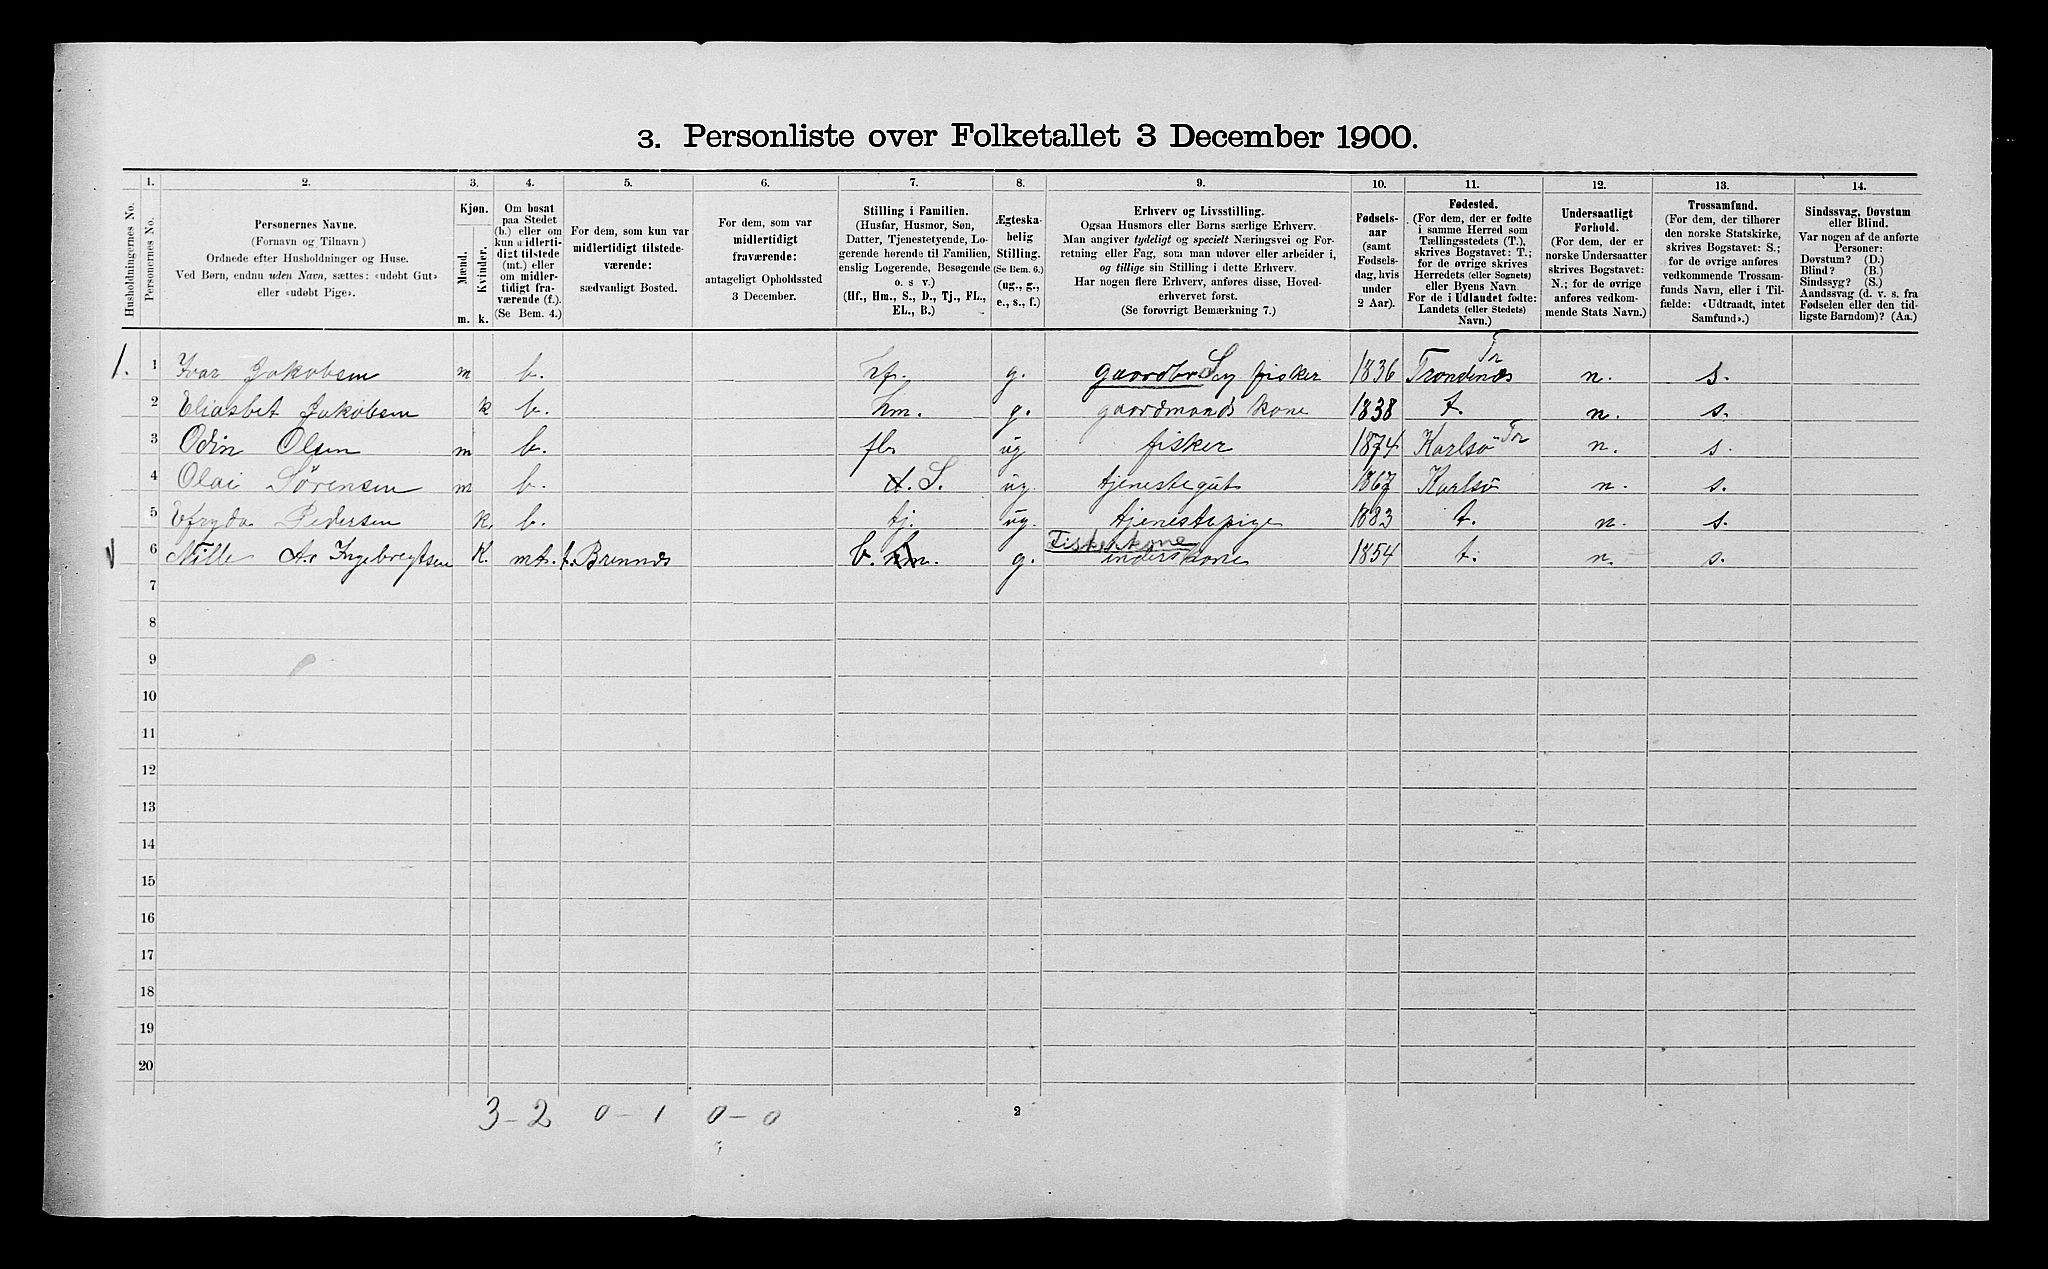 3. Personliste over Folketallet 3 December 1900.
1. 2. 3. 4. 5. 6. 7. 8. 9. 10. 11. 12. 13. 14.
Husholdningernes No.
Personernes No.
Personernes Navne.
(Fornavn og Tilnavn)
Ordnede efter Husholdninger og Huse.
Ved Børn, endnu uden Navn, sættes: «udøbt Gut»
eller «udøbt Pige».
Kjøn.
Mænd.
Kvinder.
m. k.
Om bosat
paa Stedet
(b.) eller om
kun midlerti-
digt tilstede
(mt.) eller
om midler-
tidigt fra-
værende (f.).
(Se Bem. 4.)
For dem, som kun var
midlertidigt tilstede-
værende:
sædvanligt Bosted.
For dem, som var
midlertidigt
fraværende:
antageligt Opholdssted
3 December.
Stilling i Familien.
(Husfar, Husmor, Søn,
Datter, Tjenestetyende, Lo-
gerende hørende til Familien,
enslig Logerende, Besøgende
o. s v.)
(Hf., Hm., S., D., Tj., FL.,
EL., B.)
Ægteska-
belig
Stilling.
(Se Bem. 6.)
(ug., g.,
e., s., f.)
Erhverv og Livsstilling.
Ogsaa Husmors eller Børns særlige Erhverv.
Man angiver tydeligt og specielt Næringsvei og For-
retning eller Fag, som man udøver eller arbeider i,
og tillige sin Stilling i dette Erhverv.
Har nogen flere Erhverv, anføres disse, Hoved-
erhvervet først.
(Se forøvrigt Bemærkning 7.)
Fødsels-
aar
(samt
Fødsels-
dag, hvis
under
2 Aar).
Fødested.
(For dem, der er fødte
i samme Herred som
Tællingsstedets (T.),
skrives Bogstavet: T.;
for de øvrige skrives
Herredets (eller Sognets)
eller Byens Navn.
For de i Udlandet fødte:
Landets (eller Stedets)
Navn.)
Undersaatligt
Forhold.
(For dem, der er
norske Undersaatter
skrives Bogstavet:
N.; for de øvrige
anføres vedkom-
mende Stats Navn.)
Trossamfund.
(For dem, der tilhører
den norske Statskirke,
skrives Bogstavet: S.;
for de øvrige anføres
vedkommende Trossam-
funds Navn, eller i Til-
fælde: «Udtraadt, intet
Samfund».)
Sindssvag, Døvstum
eller Blind.
Var nogen af de anførte
Personer:
Døvstum? (D.)
Blind? (B.)
Sindssyg? (S.)
Aandssvag (d. v. s. fra
Fødselen eller den tid-
ligste Barndom)? (Aa.)
1. 1 Ivar Jakobsen m b. hf. g. gaardbr S og fisker 1836 Trondenæs Tr n. s.
2 Eliasbet Jakobsen k b. hm. g. gaardmands kone 1838 t. n. s.
3 Odin Olsen m b. fl. ug fisker 1874 Karlsö Tr n. s.
4 Olai Sørensen m b. S. ug. tjenestegut 1867 Karlsö n. s.
5 Pedersen k. b. tj. ug. tjenestepige 1883 t. n. s.
6 Nille A. Ingebregtsen K. mt. t. Brennæs b. hm. g. Fiskerkone inderstkone 1854 t. n. s.
7
8
9
10
11
12
13
14
15
16
17
18
19
20
3-2 0-1 0-0
2